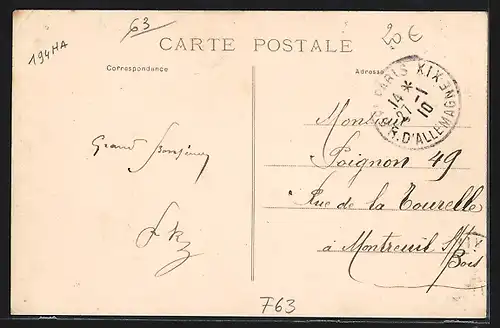 63
20€
194HA
CARTE POSTALE
Correspondance
Adresse
PARIS XIX ANNEXE
14 *
27 - 1
10
R. D'ALLEMAGNE
Monsieur
Poignon 49
Rue de la Tourelle
à Montreuil s/s
Bois
Grand Bonjour
763